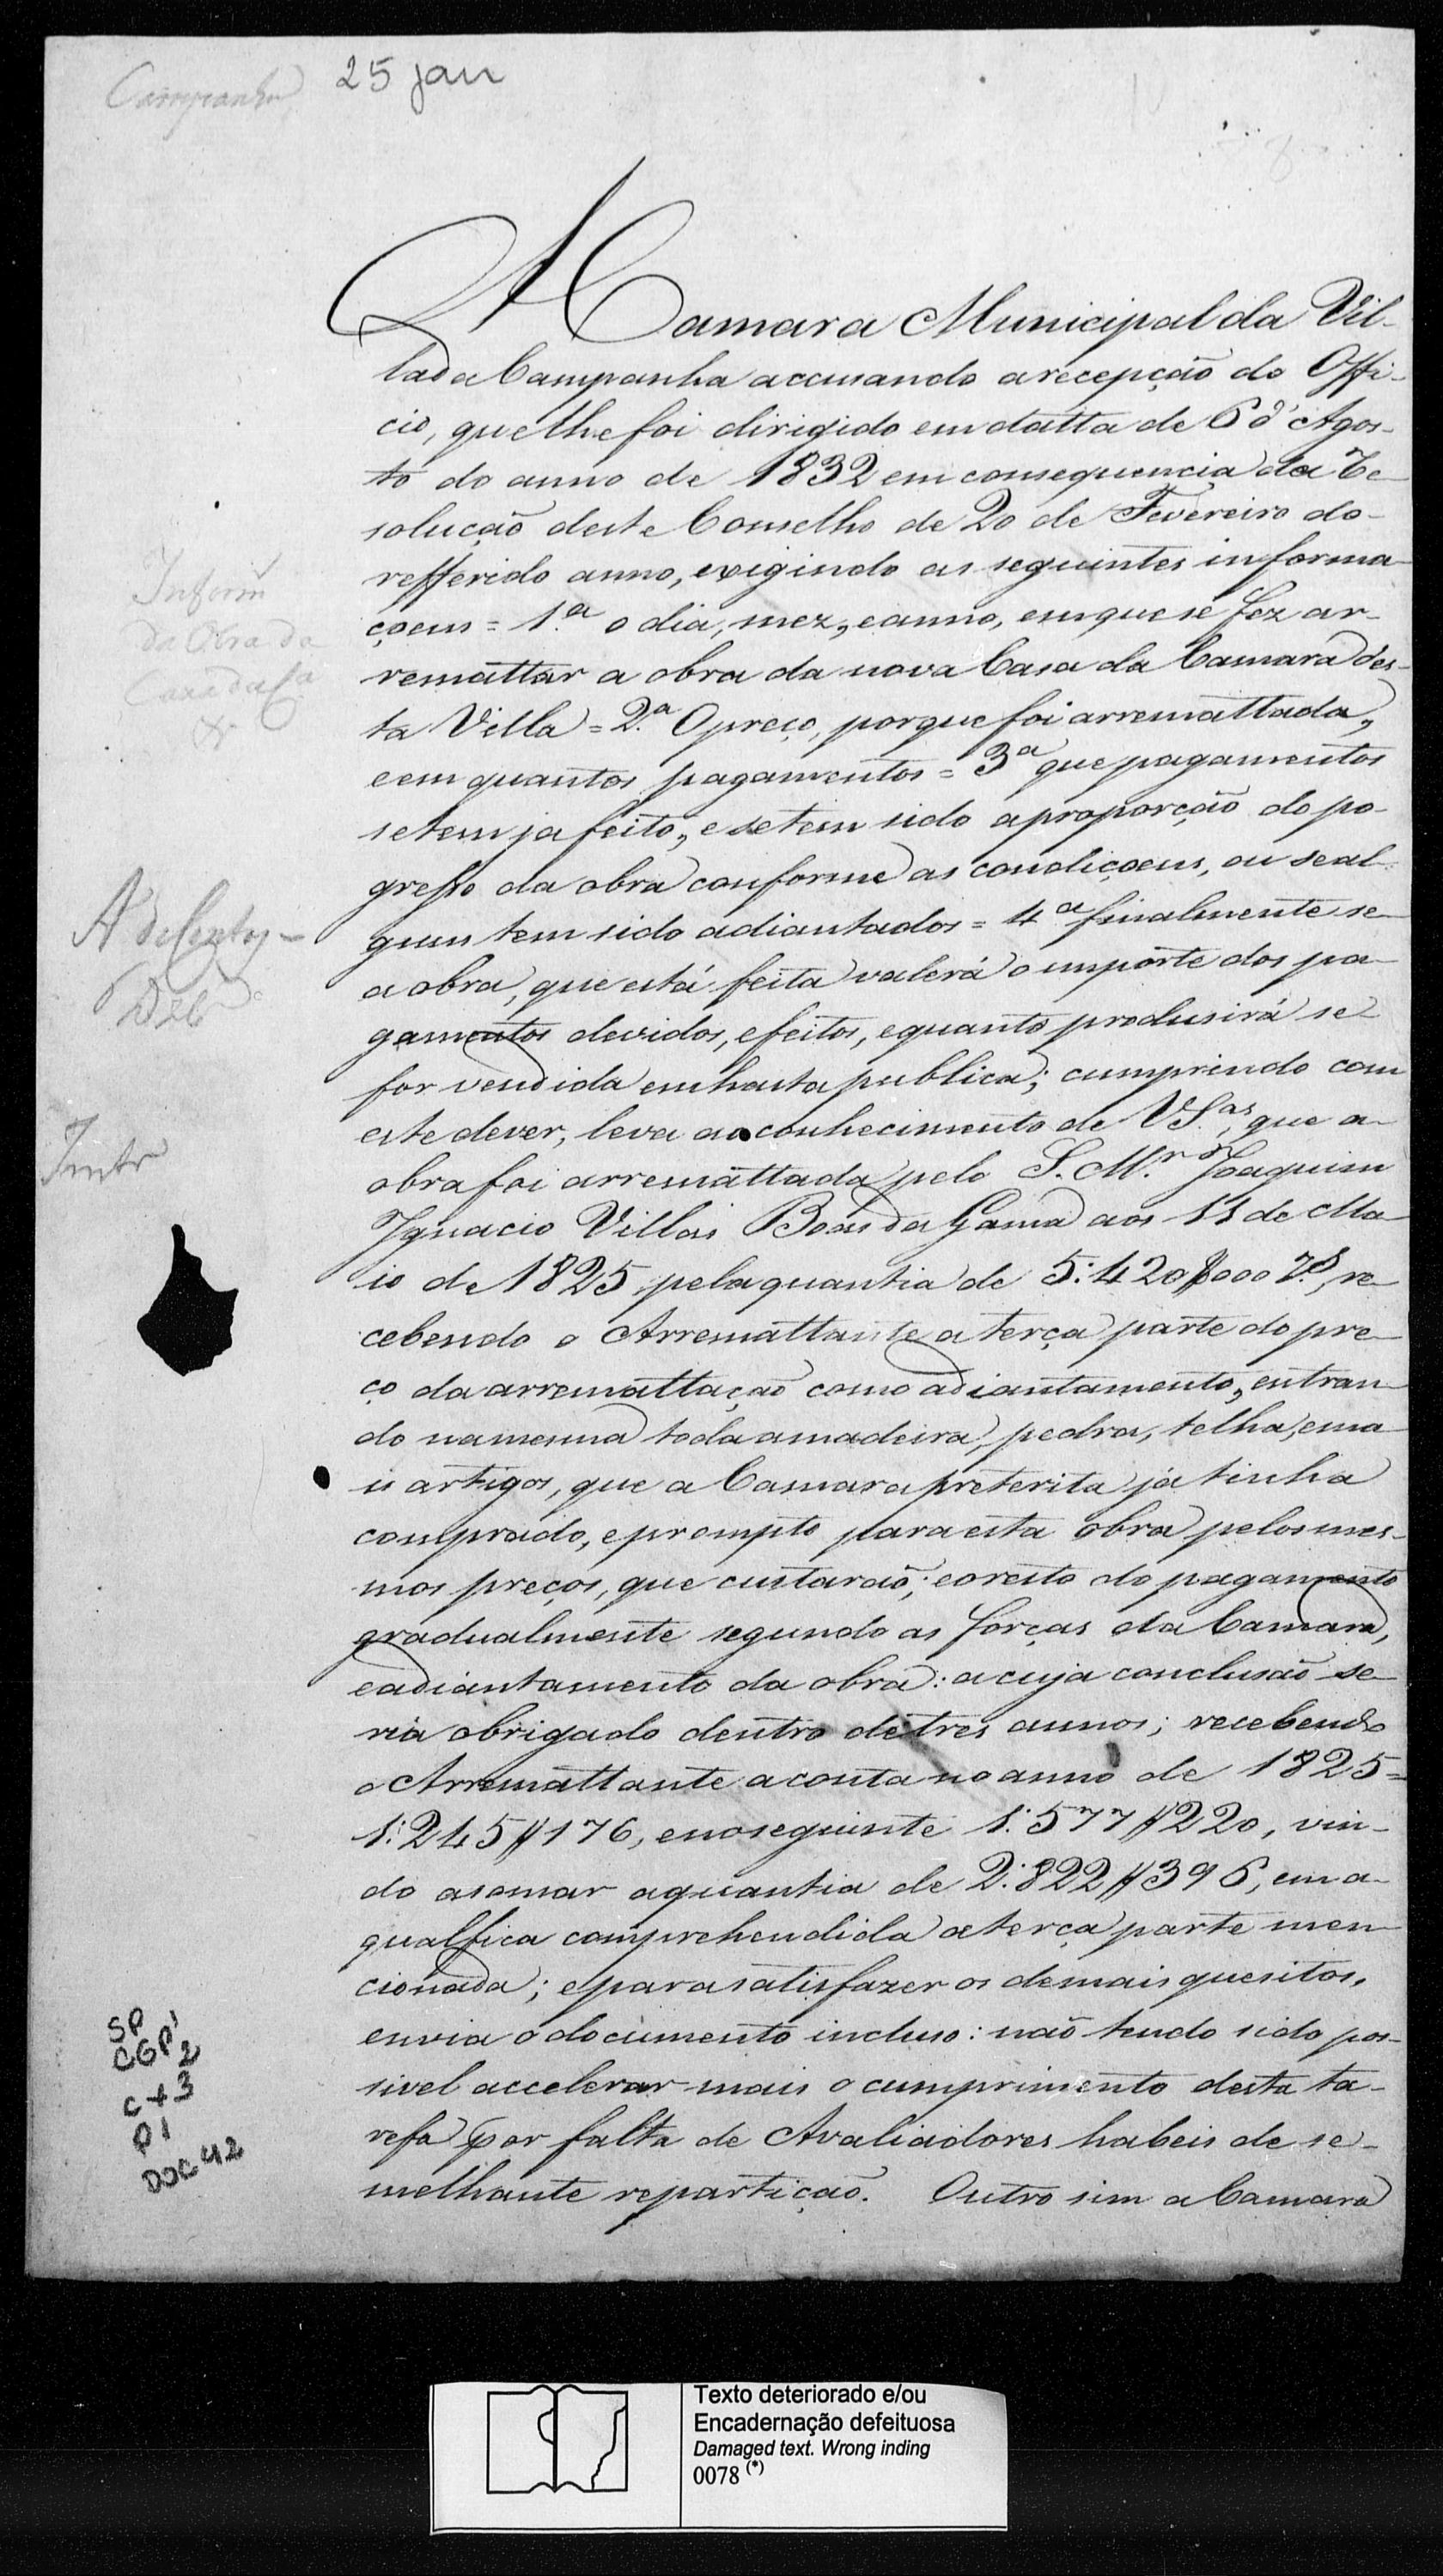 Campanha
25 jan
A Camara Municipal da Vil-
la da Campanha accusando a recepção do Offi-
cio, que lhe foi dirigido em datta de 6 d'Agos-
to do anno de 1832 em consequencia da Re-
solução deste Conselho de 20 de Fevereiro do
refferido anno, exigindo as seguintes informa-
çoens = 1.ª o dia, mez, e anno, em que se fez ar-
remattar a obra da nova Casa da Camara des-
ta Villa = 2.ª O preço, porque foi arremattada,
e em quantos pagamentos = 3ª que pagamentos
se tem ja feito, e se tem sido a proporção do po-
gresso da obra conforme as condiçoens, ou se al-
guns tem sido adiantados = 4ª finalmente se
a obra, que está feita valerá o importe dos pa-
gamentos devidos, e feitos, e quanto produsirá se
for vendida em hasta publica; cumprindo com
este dever, leva ao conhecimento de VS.as, que a
obra foi arremattada pelo S. M.r Joaquim
Ignacio Villas Boas da Gama aos 11 de Ma-
io de 1825 pela quantia de 5:420$000 rs, re-
cebendo o Arremattante a terça parte do pre-
ço da arremattação como adiantamento, entran-
do na mesma toda a madeira, pedra, telha, e ma-
is artigos, que a Camara preterita já tinha
comprado, e prompto para esta obra pelos mes-
mos preços, que custarão; e o resto do pagamento
gradualmente segundo as forças da Camara,
e adiantamento da obra: a cuja conclusão se-
ria obrigado dentro de tres annos; recebendo
o Arremattante a conta no anno de 1825=
1:245$176, e no seguinte 1:577$220, vin-
do a somar a quantia de 2:822$396, em a
qual fica comprehendida a terça parte men-
cionada; e para satisfazer os demais quesitos,
envia o documento incluso: não tendo sido pos-
sivel accelerar mais o cumprimento desta ta-
refa por falta de Avaliadores habeis de se-
melhante repartição. Outro sim a Camara
Inform
da Obra da
Casa da Ca
&
SP
CGP1
2
C+3
P1
DOC 42
Texto deteriorado e/ou
Encadernação defeituosa
Damaged text. Wrong inding
0078 (*)